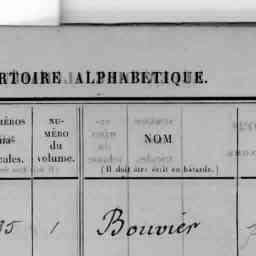 RTOIRE ALPHABETIQUE.
MÉROS
cales.
NU-
MÉRO
du
volume.
NOM
(Il doit être écrit en bâtarde.)
5
1
Bouvier